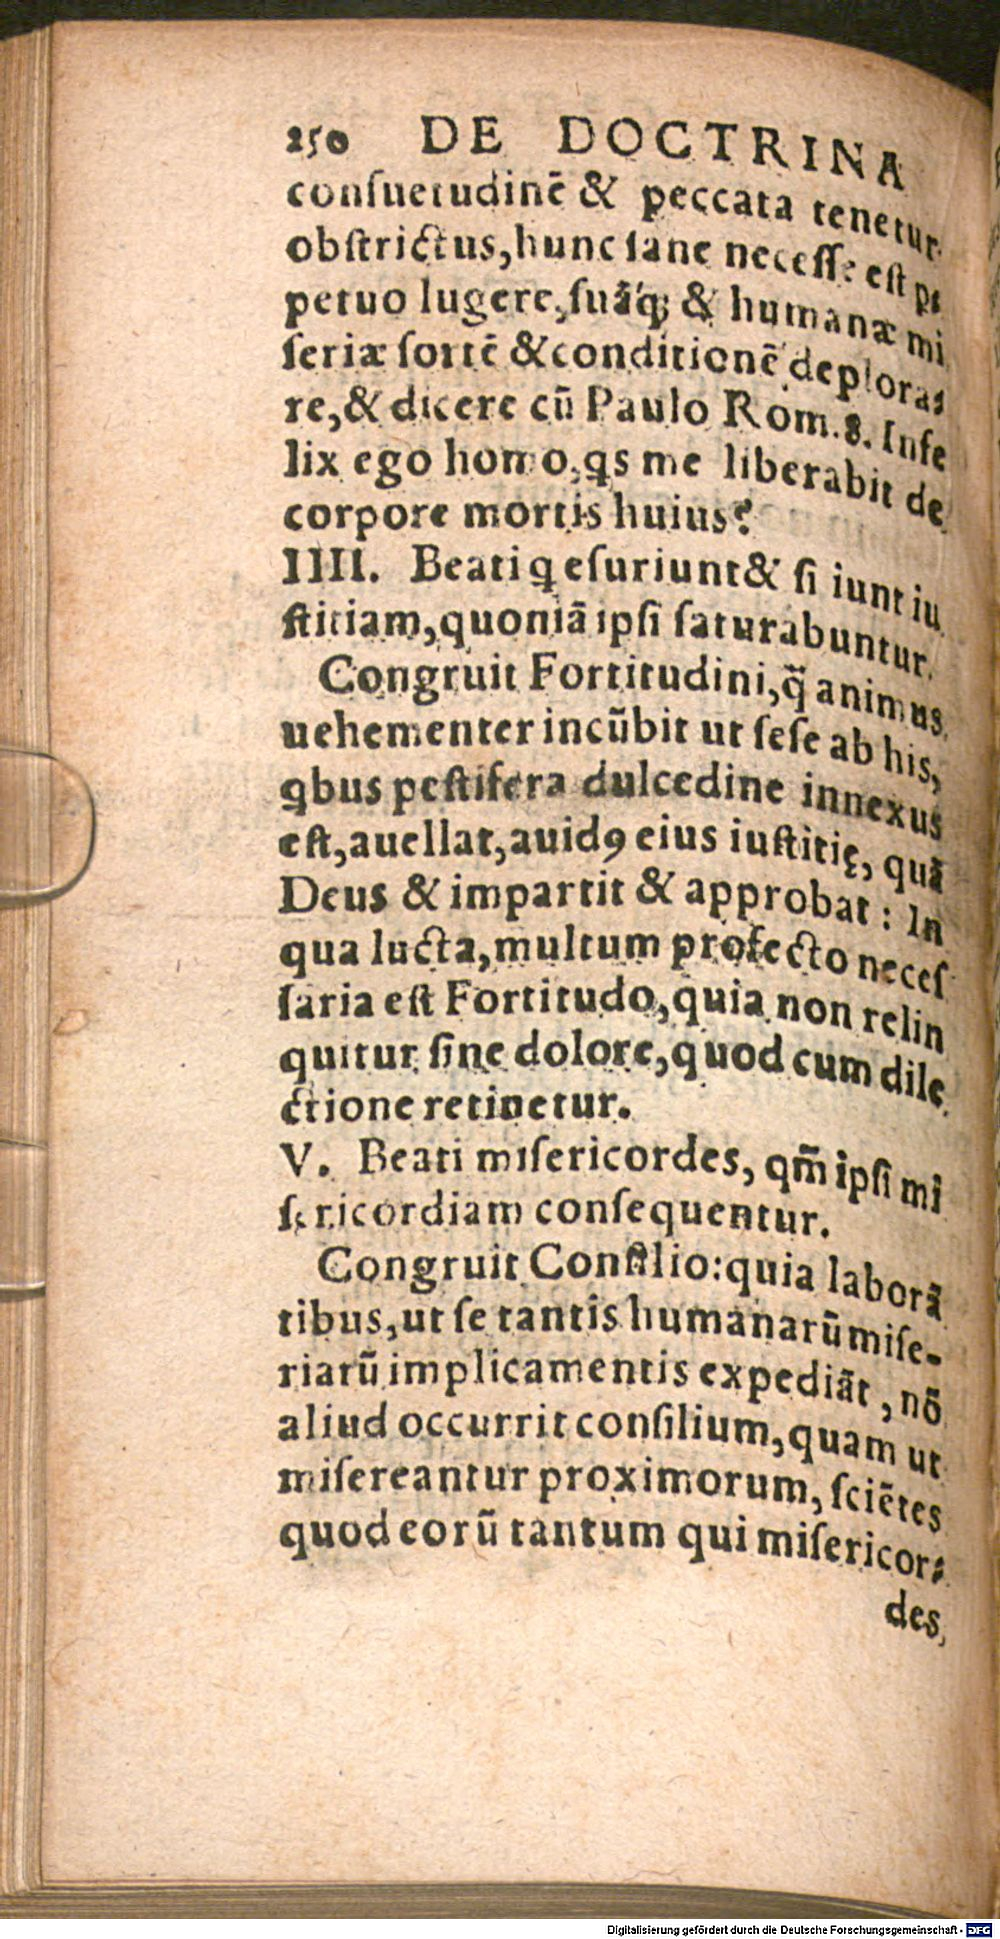 250 DE DOCTRINA
conſuetudinē & peccata tenetur
obſtrictus, hunc ſane neceſſe est p⸗
petuo lugere, ſuāq; & humanæ mi
ſeriæ ſortē & conditionē deplora⸗
re, & dicere cū Paulo Rom. 8. Infe
lix ego homo, qs me liberabit de
corpore mortis huius?
IIII. Beati q eſuriunt & ſi iunt iu
ſtitiam, quoniā ipſi ſaturabuntur.
Congruit Fortitudini, q̃ animus
uehementer incūbit ut ſeſe ab his,
qbus peſtifera dulcedine innexus
eſt, auellat, auidꝯ eius iuſtitię, quā
Deus & impartit & approbat: In
qua lucta, multum profecto neceſ
ſaria eſt Fortitudo, quia non relin
quitur ſine dolore, quod cum dile
ctione retinetur.
V. Beati miſericordes, qm̃ ipſi mi
ſericordiam conſequentur.
Congruit Conſilio: quia laborā
tibus, ut ſe tantis humanarū miſe-
riarū implicamentis expediāt, nō
aliud occurrit conſilium, quam ut
miſereantur proximorum, ſciētes
quod eorū tantum qui miſericor⸗
des,
Digitalisierung gefördert durch die Deutsche Forschungsgemeinschaft - DFG